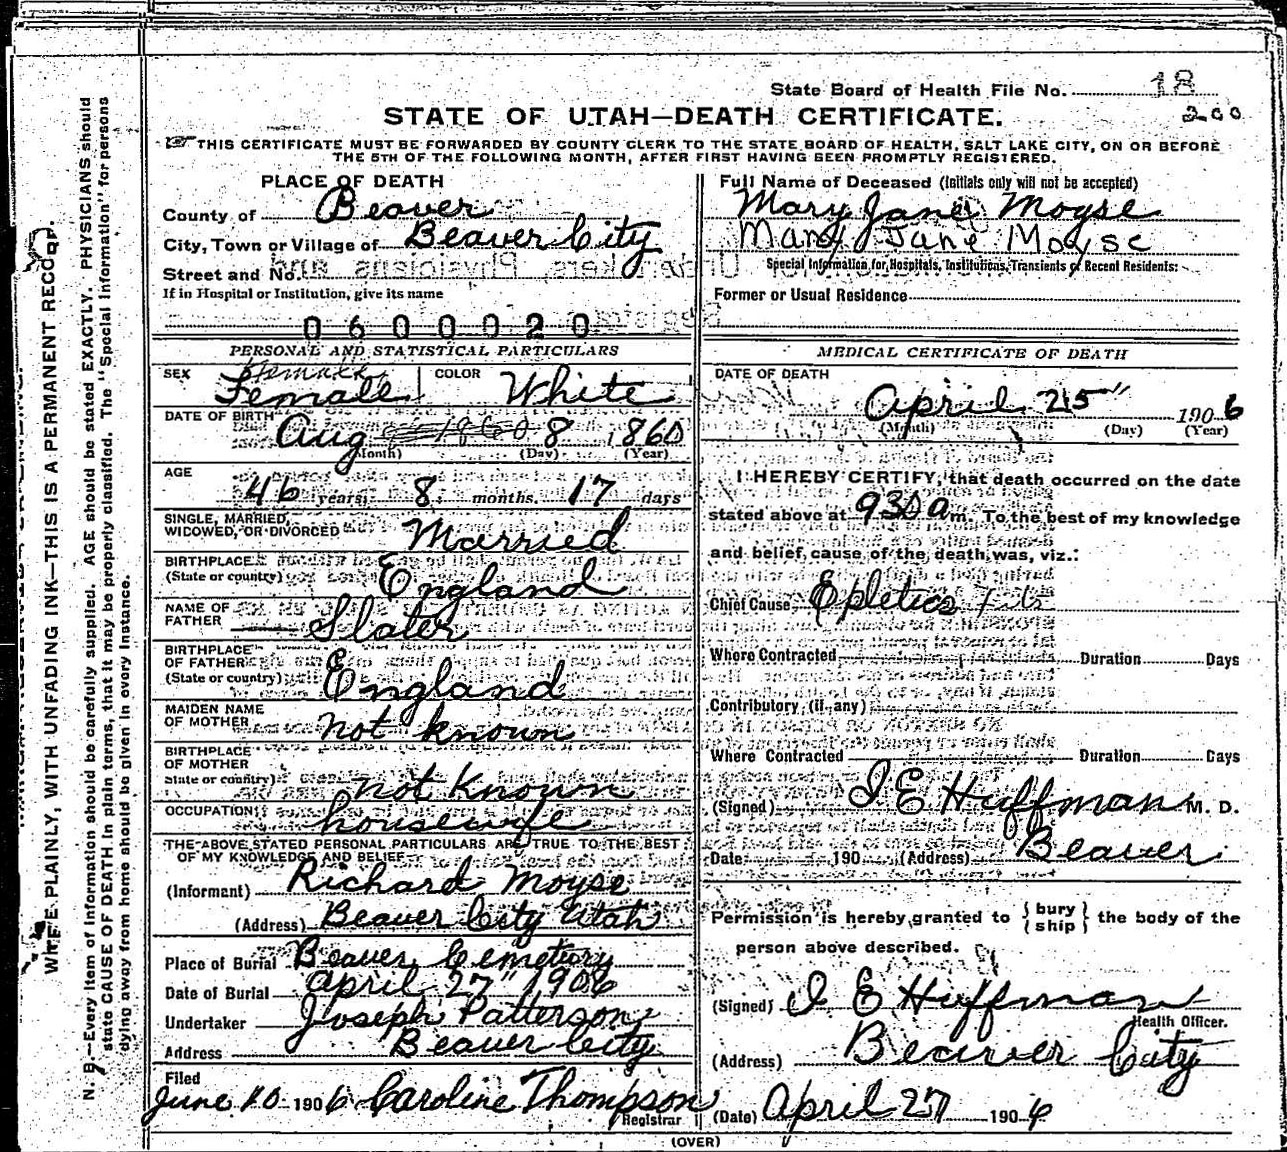 State Board of Health File No. 18
200
STATE OF UTAH—DEATH CERTIFICATE.
THIS CERTIFICATE MUST BE FORWARDED BY COUNTY CLERK TO THE STATE BOARD OF HEALTH, SALT LAKE CITY, ON OR BEFORE
THE 5TH OF THE FOLLOWING MONTH, AFTER FIRST HAVING BEEN PROMPTLY REGISTERED.
PLACE OF DEATH
County of Beaver
City, Town or Village of Beaver City
Street and No.
If in Hospital or Institution, give its name
0600020
Full Name of Deceased (Initials only will not be accepted)
Mary Jane Moyse
Mary Jane Moyse
Special Information for Hospitals, Institutions, Transients or Recent Residents:
Former or Usual Residence
PERSONAL AND STATISTICAL PARTICULARS
SEX Female COLOR White
DATE OF BIRTH Aug 8 1860
(Month) (Day) (Year)
AGE 46 years, 8 months, 17 days
SINGLE, MARRIED,
WIDOWED, OR DIVORCED Married
BIRTHPLACE
(State or country) England
NAME OF
FATHER Slater
BIRTHPLACE
OF FATHER
(State or country) England
MAIDEN NAME
OF MOTHER not known
BIRTHPLACE
OF MOTHER
State or country) not known
OCCUPATION housewife
THE ABOVE STATED PERSONAL PARTICULARS ARE TRUE TO THE BEST
OF MY KNOWLEDGE AND BELIEF
(Informant) Richard Moyse
(Address) Beaver City Utah
Place of Burial Beaver Cemetery
Date of Burial April 27" 1906
Undertaker Joseph Patterson
Address Beaver City
Filed
June 10 1906 Caroline Thompson
Registrar
MEDICAL CERTIFICATE OF DEATH
DATE OF DEATH
April 25" 1906
(Month) (Day) (Year)
I HEREBY CERTIFY, that death occurred on the date
stated above at 930 a m. To the best of my knowledge
and belief, cause of the death was, viz.:
Chief Cause Epletics fits
Where Contracted Duration Days
Contributory, (if any)
Where Contracted Duration Days
(Signed) J E Huffman M. D.
Date 190 (Address) Beaver
Permission is hereby granted to {bury
ship} the body of the
person above described.
(Signed) J E Huffman
Health Officer.
(Address) Beaver City
(Date) April 27 1906
(OVER)
WRITE PLAINLY, WITH UNFADING INK—THIS IS A PERMANENT RECORD.
N. B.—Every item of information should be carefully supplied. AGE should be stated EXACTLY. PHYSICIANS should
state CAUSE OF DEATH in plain terms, that it may be properly classified. The "Special Information" for persons
dying away from home should be given in every instance.